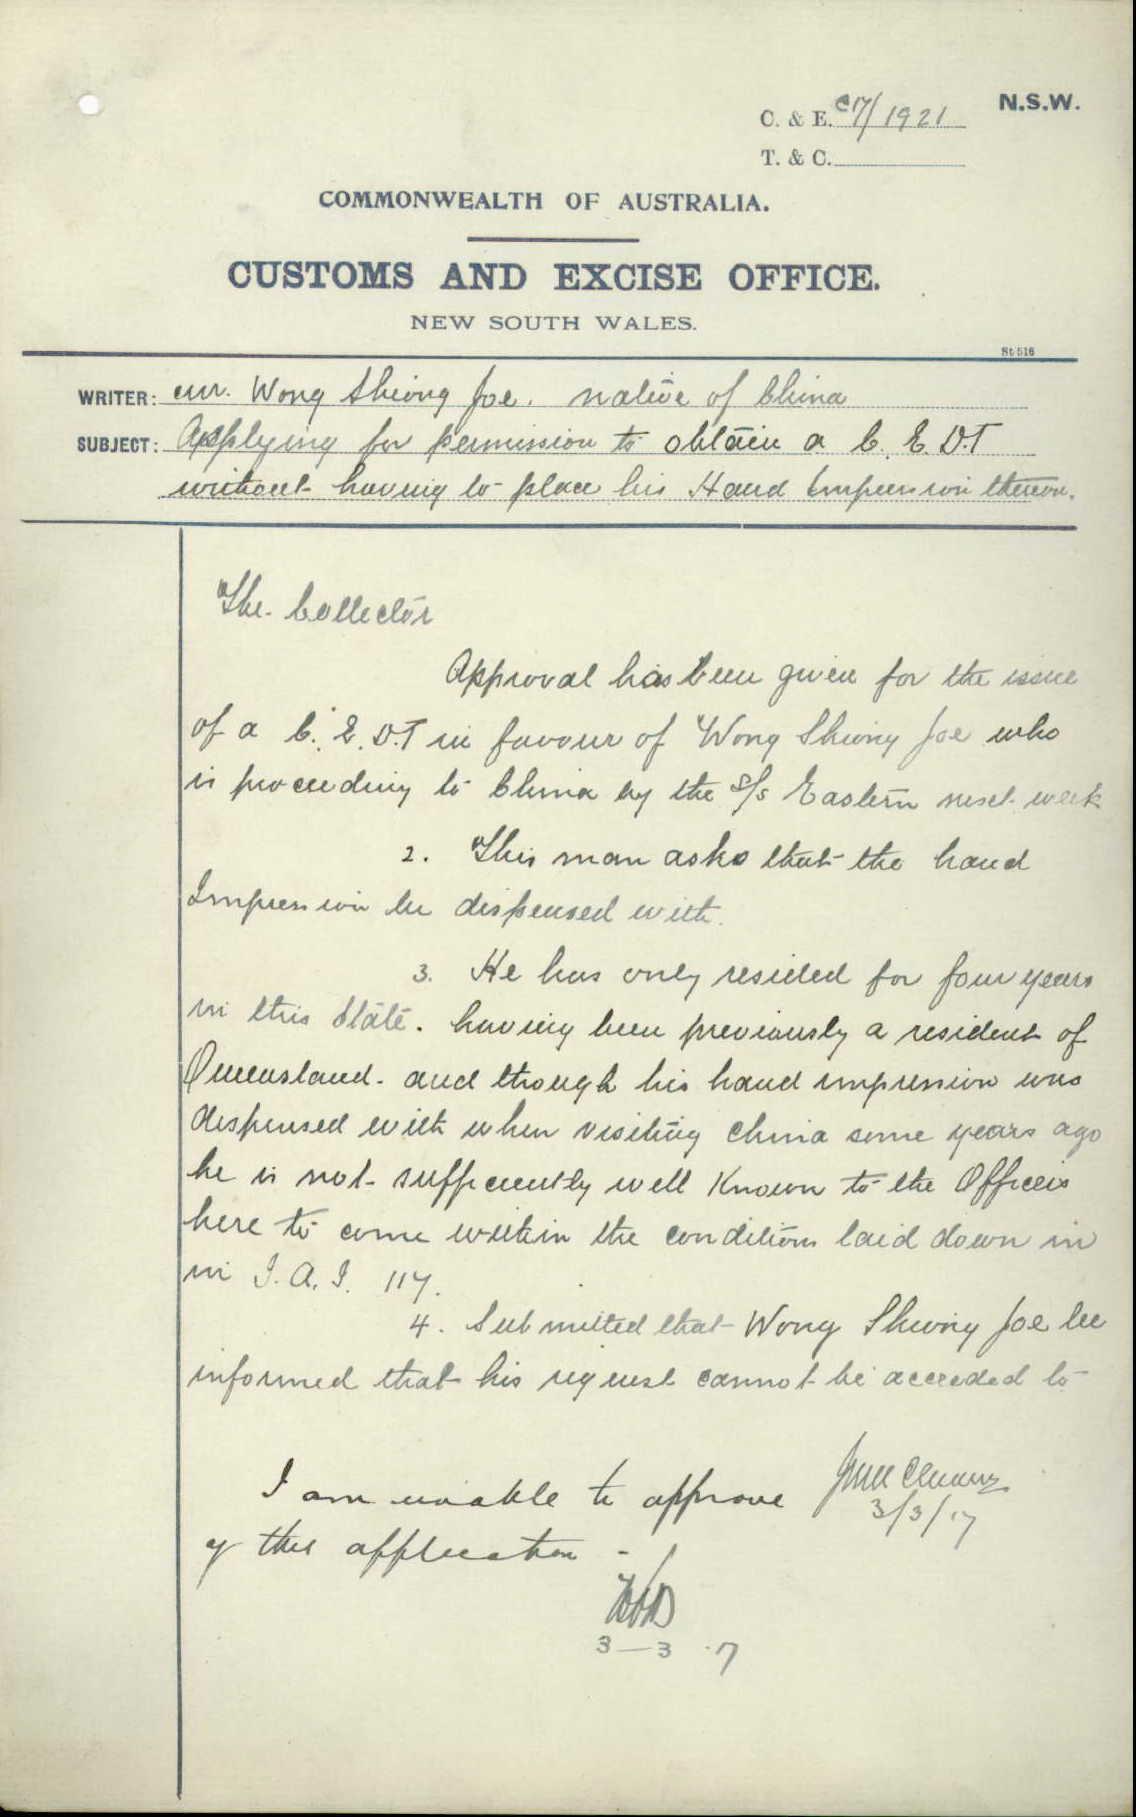 N.S.W.
C. & E. C17/1921
T. & C.
COMMONWEALTH OF AUSTRALIA.
CUSTOMS AND EXCISE OFFICE.
NEW SOUTH WALES.
St 516
WRITER: Wong Sheong Joe. native of China
SUBJECT: Applying for permission to obtain a C.E.D.T
without having to place his Hand Impression thereon.
The Collector
Approval has been given for the issue
of a C.E.D.T in favour of Wong Sheong Joe who
is proceeding to China by the S/S Eastern next week
2. This man asks that the hand
Impression be dispensed with.
3. He has only resided for four years
in this State. having been previously a resident of
Queensland. and though his hand impression was
dispensed with when visiting China some years ago
he is not sufficiently well Known to the Officers
here to come within the conditions laid down in
in I.A.I. 117.
4. Submitted that Wong Sheong Joe be
informed that his request cannot be acceeded to
3/3/17
I am unable to approve
of this application -
3-3-17